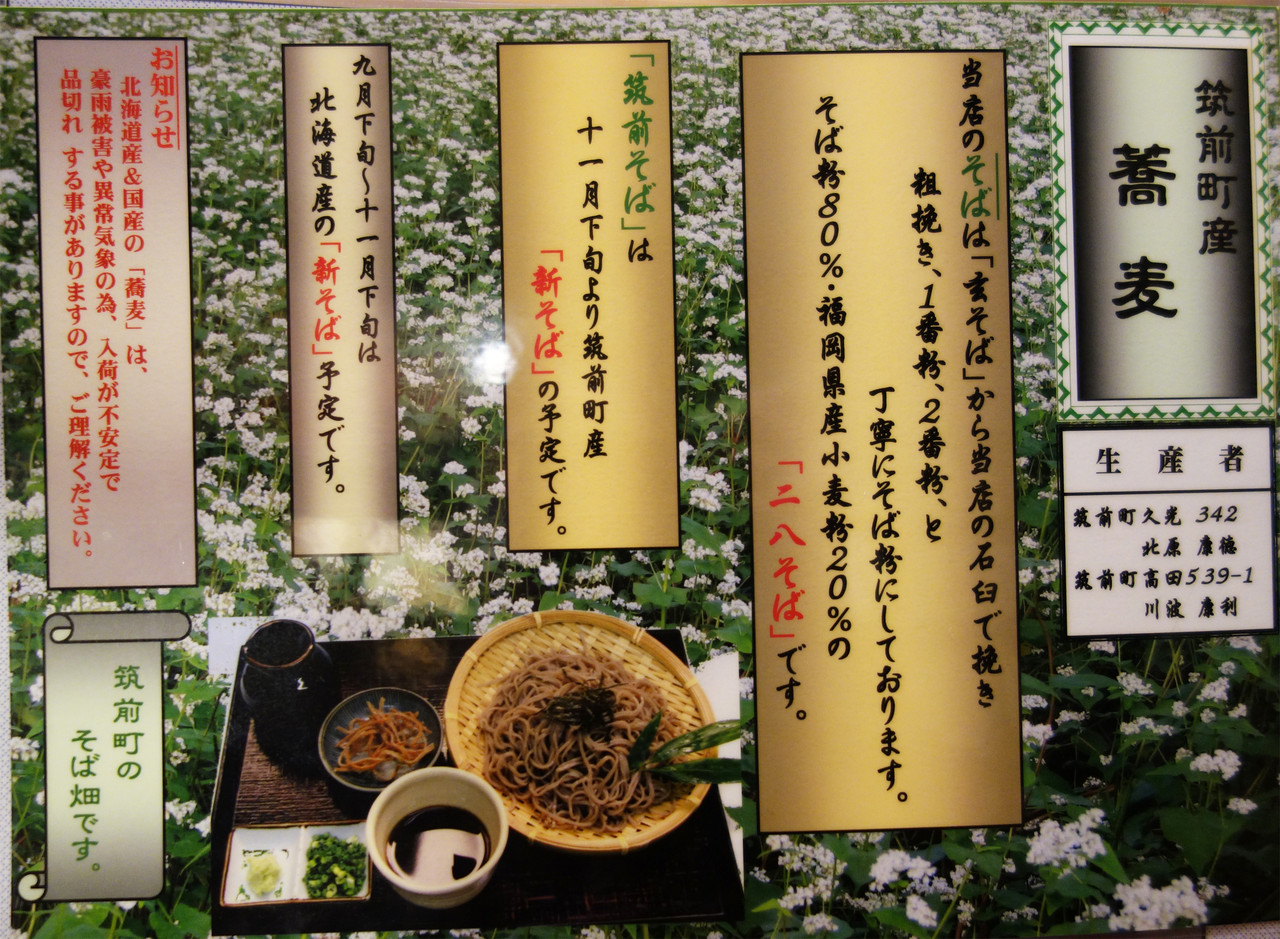 筑前町産
蕎麦
生産者
筑前町久光 342
北原 康徳
筑前町高田539-1
川波 康利
当店のそばは「玄そば」から当店の石臼で挽き
粗挽き、1番粉、2番粉、と
丁寧にそば粉にしております。
そば粉80%・福岡県産小麦粉20%の
「二八そば」です。
「筑前そば」は
十一月下旬より筑前町産
「新そば」の予定です。
九月下旬〜十一月下旬は
北海道産の「新そば」予定です。
お知らせ
北海道産&国産の「蕎麦」は、
豪雨被害や異常気象の為、入荷が不安定で
品切れ する事がありますので、ご理解ください。
筑前町の
そば畑です。